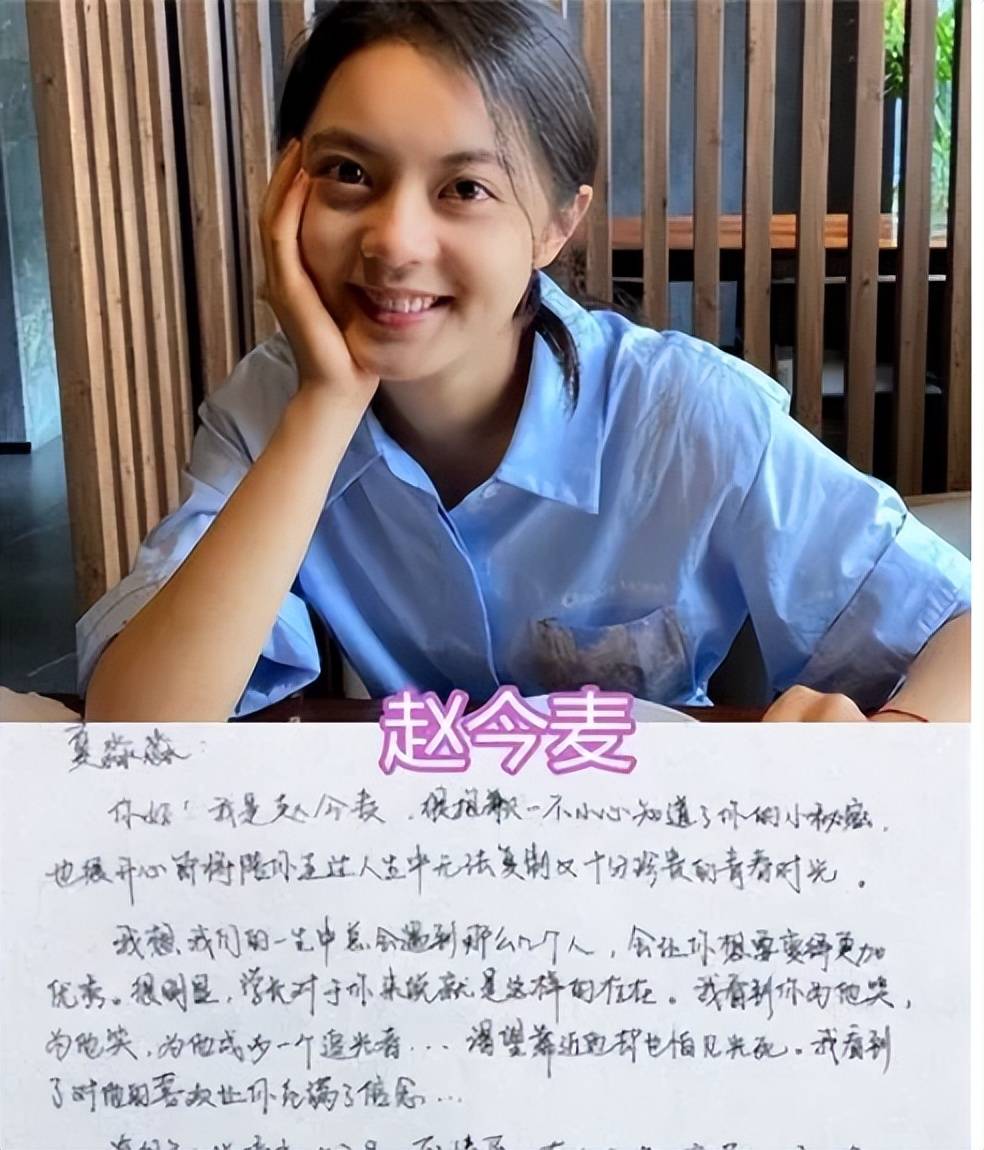 赵今麦
夏淼淼：
你好！我是赵今麦，很抱歉一不小心知道了你的小秘密，
也很开心能够陪你走过人生中无法复制又十分珍贵的青春时光。
我想，我们的一生中总会遇到那么几个人，会让你想要变得更加
优秀。很明显，学长对于你来说就是这样的存在。我看到你为他哭，
为他笑，为他成为一个追光者...渴望靠近却也怕见光死。我看到
了对他的喜欢让你充满了信念...